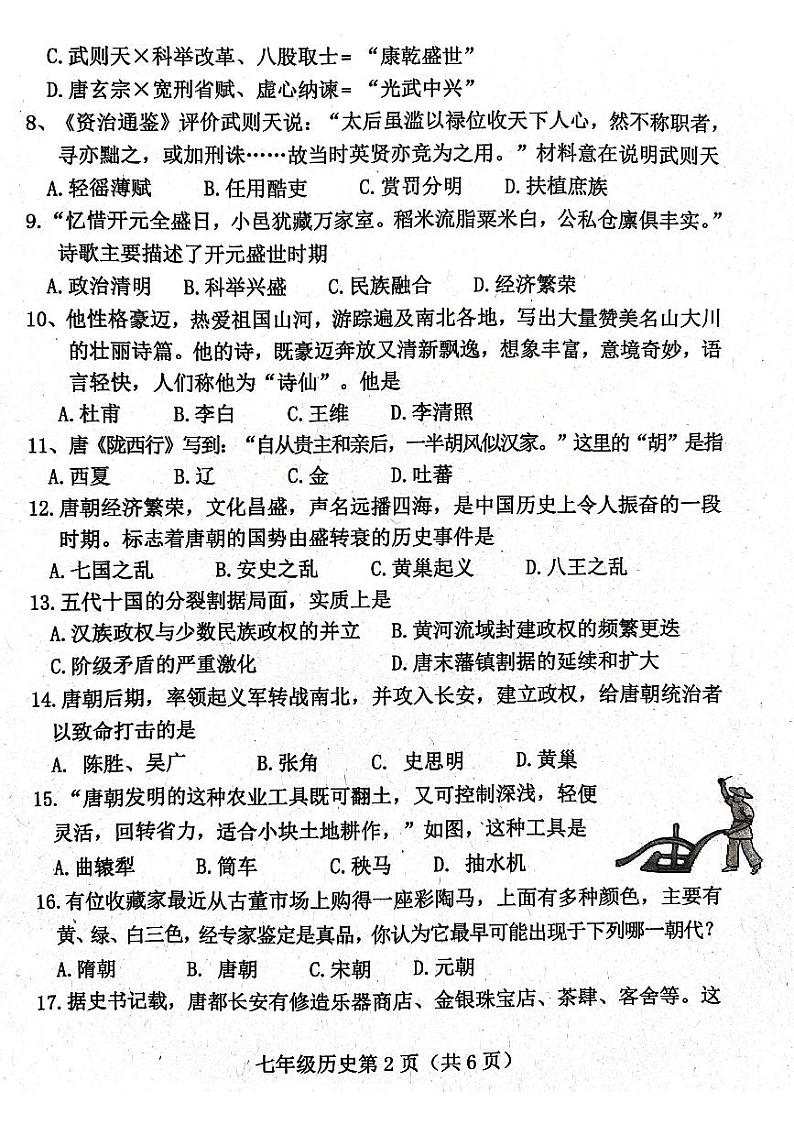 C.武则天×科举改革、八股取士=“康乾盛世”
D.唐玄宗×宽刑省赋、虚心纳谏=“光武中兴”
8、《资治通鉴》评价武则天说：“太后虽滥以禄位收天下人心，然不称职者，
寻亦黜之，或加刑诛……故当时英贤亦竞为之用。”材料意在说明武则天
A.轻徭薄赋 B.任用酷吏 C.赏罚分明 D.扶植庶族
9.“忆惜开元全盛日，小邑犹藏万家室。稻米流脂粟米白，公私仓廪俱丰实。”
诗歌主要描述了开元盛世时期
A.政治清明 B.科举兴盛 C.民族融合 D.经济繁荣
10、他性格豪迈，热爱祖国山河，游踪遍及南北各地，写出大量赞美名山大川
的壮丽诗篇。他的诗，既豪迈奔放又清新飘逸，想象丰富，意境奇妙，语
言轻快，人们称他为“诗仙”。他是
A.杜甫 B.李白 C.王维 D.李清照
11、唐《陇西行》写到：“自从贵主和亲后，一半胡风似汉家。”这里的“胡”是指
A.西夏 B.辽 C.金 D.吐蕃
12.唐朝经济繁荣，文化昌盛，声名远播四海，是中国历史上令人振奋的一段
时期。标志着唐朝的国势由盛转衰的历史事件是
A.七国之乱 B.安史之乱 C.黄巢起义 D.八王之乱
13.五代十国的分裂割据局面，实质上是
A.汉族政权与少数民族政权的并立 B.黄河流域封建政权的频繁更迭
C.阶级矛盾的严重激化 D.唐末藩镇割据的延续和扩大
14.唐朝后期，率领起义军转战南北，并攻入长安，建立政权，给唐朝统治者
以致命打击的是
A. 陈胜、吴广 B.张角 C. 史思明 D.黄巢
15.“唐朝发明的这种农业工具既可翻土，又可控制深浅，轻便
灵活，回转省力，适合小块土地耕作，”如图，这种工具是
A.曲辕犁 B.筒车 C.秧马 D. 抽水机
16.有位收藏家最近从古董市场上购得一座彩陶马，上面有多种颜色，主要有
黄、绿、白三色，经专家鉴定是真品，你认为它最早可能出现于下列哪一朝代？
A.隋朝 B. 唐朝 C.宋朝 D.元朝
17.据史书记载，唐都长安有修造乐器商店、金银珠宝店、茶肆、客舍等。这
七年级历史第2页（共6页）